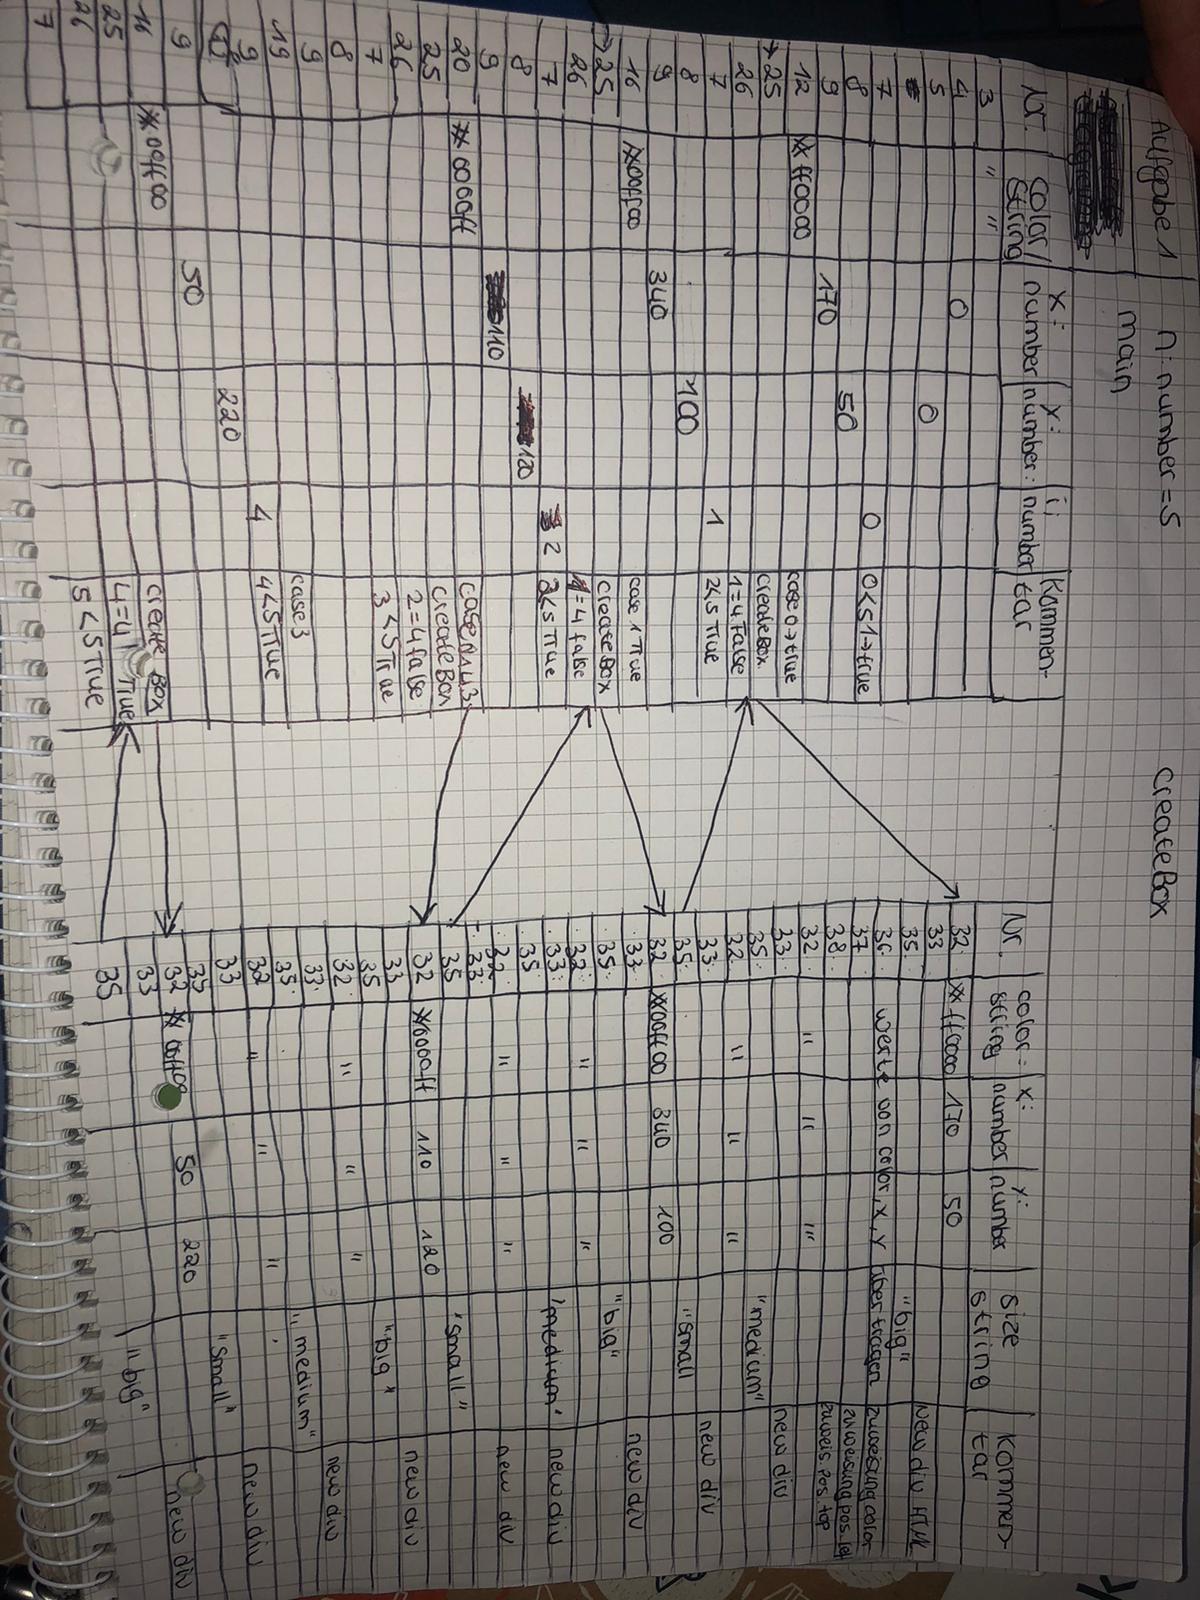 Aufgabe 1 n: number = 5 createBox
main
Nr. color/ string x: number y: number: i: number Kommen- tar
3 " "
4 0
5 0
7 0 0<5 1→true
8 50
9 170
12 #ff0000 case 0→true
→25 createBox
26 1=4 False
7 1 2<5 True
8 100
9 340
16 #00ff00 case 1 True
→25 createBox
26 1=4 false
7 2 2<5 True
8 120
9 110
20 #0000ff case
25 createBox
26 2=4 false
7 3<5 True
8
9 case 3
19 4 4<5 True
9 220
9 50
16 #00ff00 create Box
25 4=4 True
26 5<5 True
7
Nr. color: string x: number y: number size string Kommen- tar
32 #ff0000 170 50
33 New div HTML
35 "big"
36 werte von color, x, y übertragen zuweisung color
37 zuweisung pos. left
38 zuweis. pos. top
32 " " "
33 new div
35 "medium"
32 " " "
33 new div
35 "small
32 #00ff00 340 100
33 new div
35 "big"
32 " " "
33 "medium" new div
35
32 " " " new div
33
35 "small"
32 #0000ff 110 120
33 new div
35 "big"
32 " " "
33 new div
35 "medium"
32 " " "
33 new div
35 "small"
32 #00ff00 50 220
33 new div
35 "big"